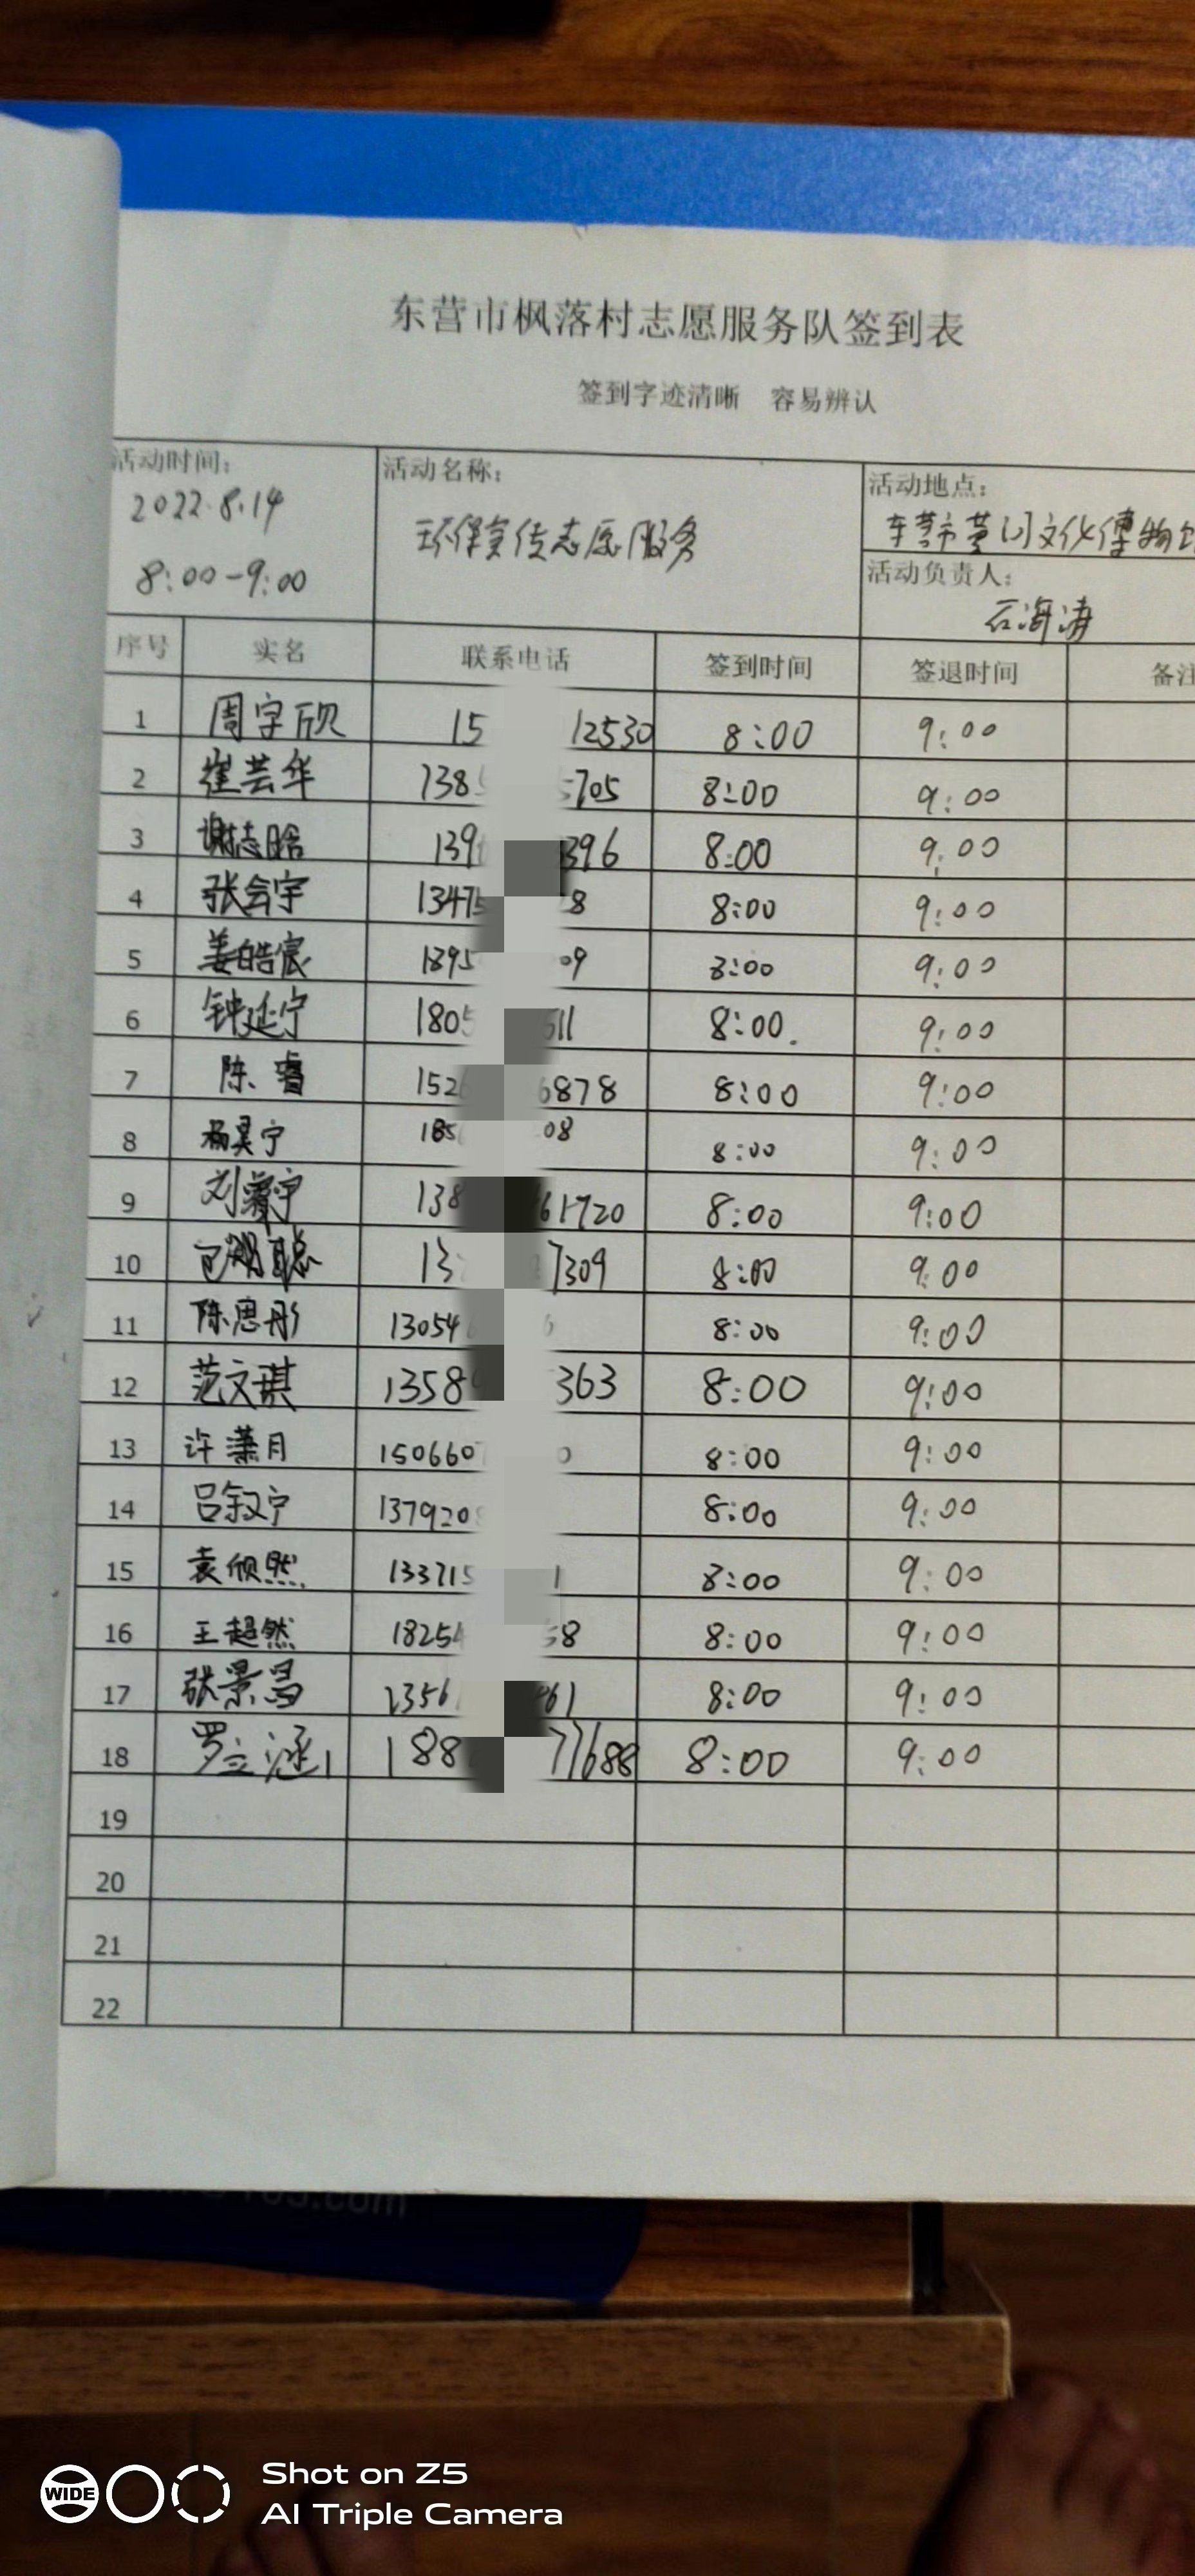 东营市枫落村志愿服务队签到表
签到字迹清晰 容易辨认
活动时间： 活动名称： 活动地点：
2022.8.14 环保宣传志愿服务 东营市黄河文化博物
8:00-9:00 活动负责人：
石海涛
序号 实名 联系电话 签到时间 签退时间 备注
1 周字欣 15 12530 8:00 9:00
2 崔芸华 138 5705 8:00 9:00
3 谢志晗 139 396 8:00 9:00
4 张会宇 13475 8 8:00 9:00
5 姜皓宸 1895 09 8:00 9:00
6 钟延宁 1805 511 8:00 9:00
7 陈睿 152 6878 8:00 9:00
8 杨昊宁 185 08 8:00 9:00
9 刘 宇 138 61720 8:00 9:00
10 聪 13 7309 8:00 9:00
11 陈思彤 13054 6 8:00 9:00
12 范文琪 1358 363 8:00 9:00
13 许潇月 150660 0 8:00 9:00
14 吕叙宁 137920 8:00 9:00
15 袁欣然 133715 1 8:00 9:00
16 王超然 18254 58 8:00 9:00
17 张景 1356 461 8:00 9:00
18 罗立涵 188 77688 8:00 9:00
19
20
21
22
WIDE
Shot on Z5
AI Triple Camera